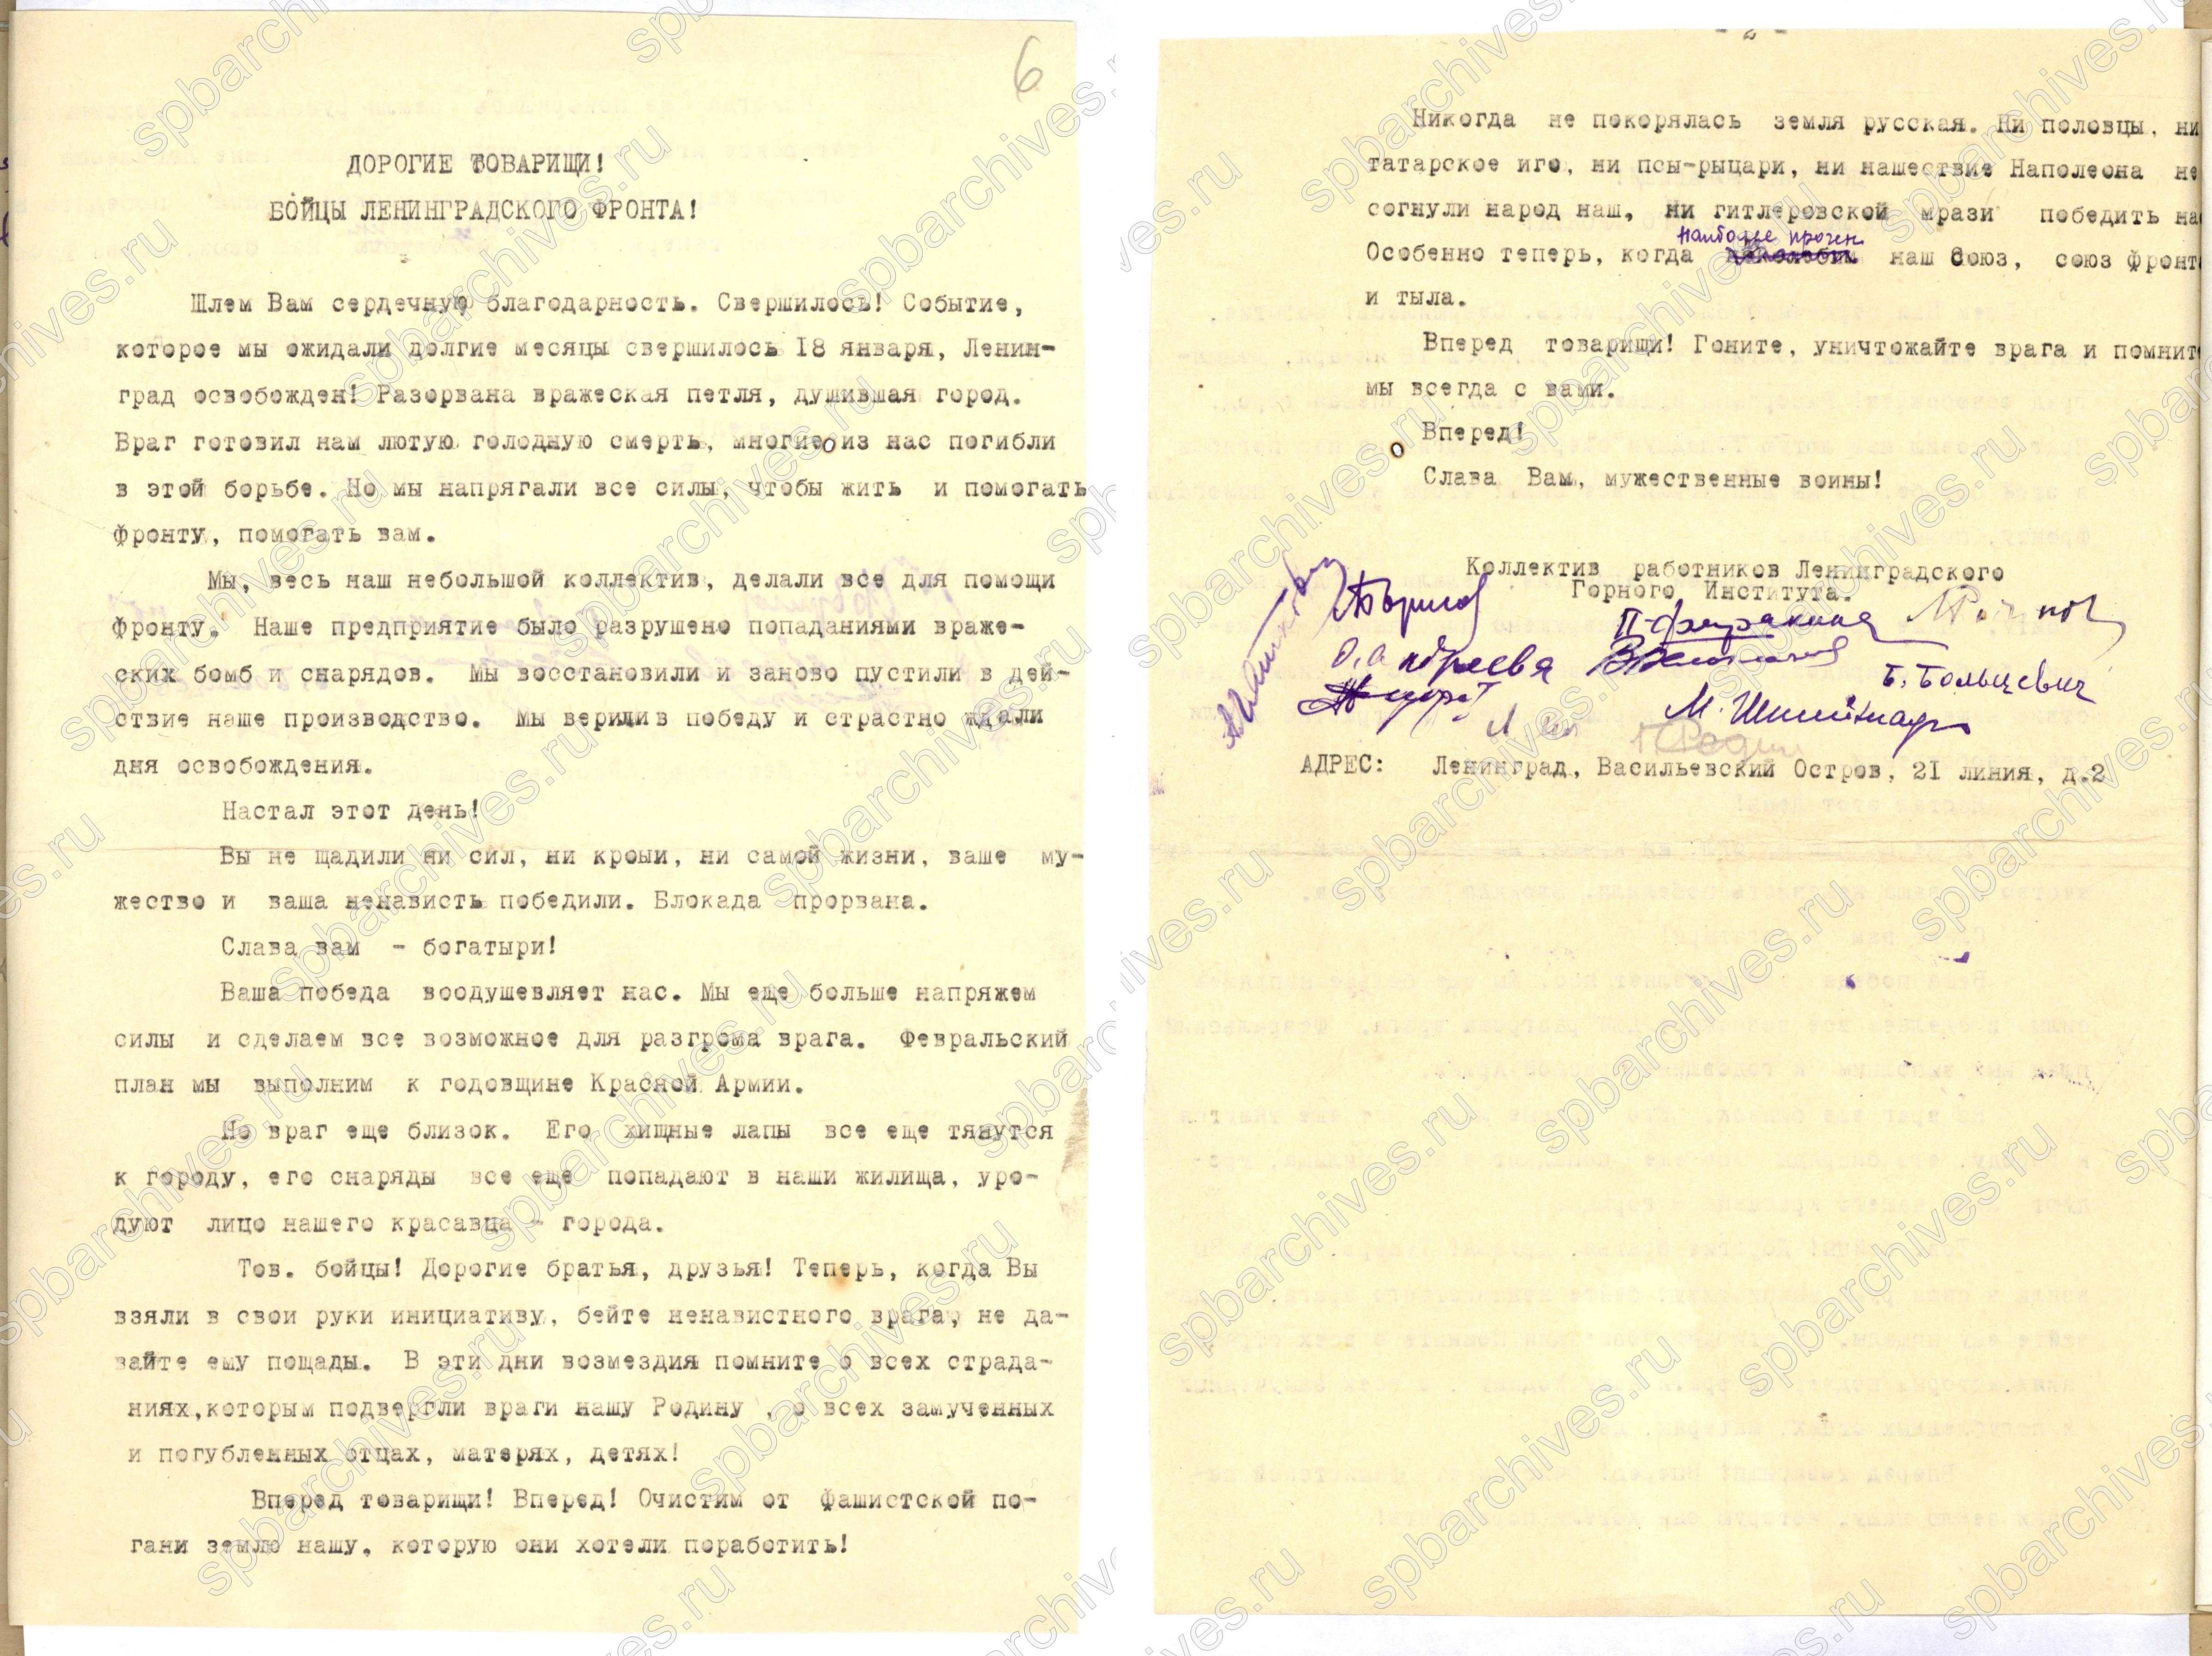 6
ДОРОГИЕ ТОВАРИЩИ!
БОЙЦЫ ЛЕНИНГРАДСКОГО ФРОНТА!
Шлем Вам сердечную благодарность. Свершилось! Событие,
которое мы ожидали долгие месяцы свершилось 18 января, Ленин-
град освобожден! Разорвана вражеская петля, душившая город.
Враг готовил нам лютую голодную смерть, многие из нас погибли
в этой борьбе. Но мы напрягали все силы, чтобы жить и помогать
фронту, помогать вам.
Мы, весь наш небольшой коллектив, делали все для помощи
фронту. Наше предприятие было разрушено попаданиями враже-
ских бомб и снарядов. Мы восстановили и заново пустили в дей-
ствие наше производство. Мы верили в победу и страстно ждали
дня освобождения.
Настал этот день!
Вы не щадили ни сил, ни крови, ни самой жизни, ваше му-
жество и ваша ненависть победили. Блокада прорвана.
Слава вам - богатыри!
Ваша победа воодушевляет нас. Мы еще больше напряжем
силы и сделаем все возможное для разгрома врага. Февральский
план мы выполним к годовщине Красной Армии.
Но враг еще близок. Его хищные лапы все еще тянутся
к городу, его снаряды все еще попадают в наши жилища, уро-
дуют лицо нашего красавца - города.
Тов. бойцы! Дорогие братья, друзья! Теперь, когда Вы
взяли в свои руки инициативу, бейте ненавистного врага, не да-
вайте ему пощады. В эти дни возмездия помните о всех страда-
ниях,которым подвергли враги нашу Родину , о всех замученных
и погубленных отцах, матерях, детях!
Вперед товарищи! Вперед! Очистим от фашистской по-
гани землю нашу, которую они хотели поработить!
- 2 -
Никогда не покорялась земля русская. Ни половцы, ни
татарское иго, ни псы-рыцари, ни нашествие Наполеона не
согнули народ наш, ни гитлеровской мрази победить на
наиболее прочен
Особенно теперь, когда наш Союз, союз фронт
и тыла.
Вперед товарищи! Гоните, уничтожайте врага и помнит
мы всегда с вами.
Вперед!
Слава Вам, мужественные воины!
Коллектив работников Ленинградского
Горного Института.
О. Андреева
Б. Больцевич
АДРЕС: Ленинград, Васильевский Остров, 21 линия, д.2
spbarchives.ru